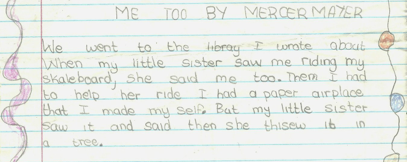 ME TOO BY MERCER MAYER
We went to the libray I wrote about
When my little sister saw me riding my
skateboard, she said me too. Them I had
to help her ride I had a paper airplace
that I made my self. But my little sister
saw it and said then she thisew it in
a tree.